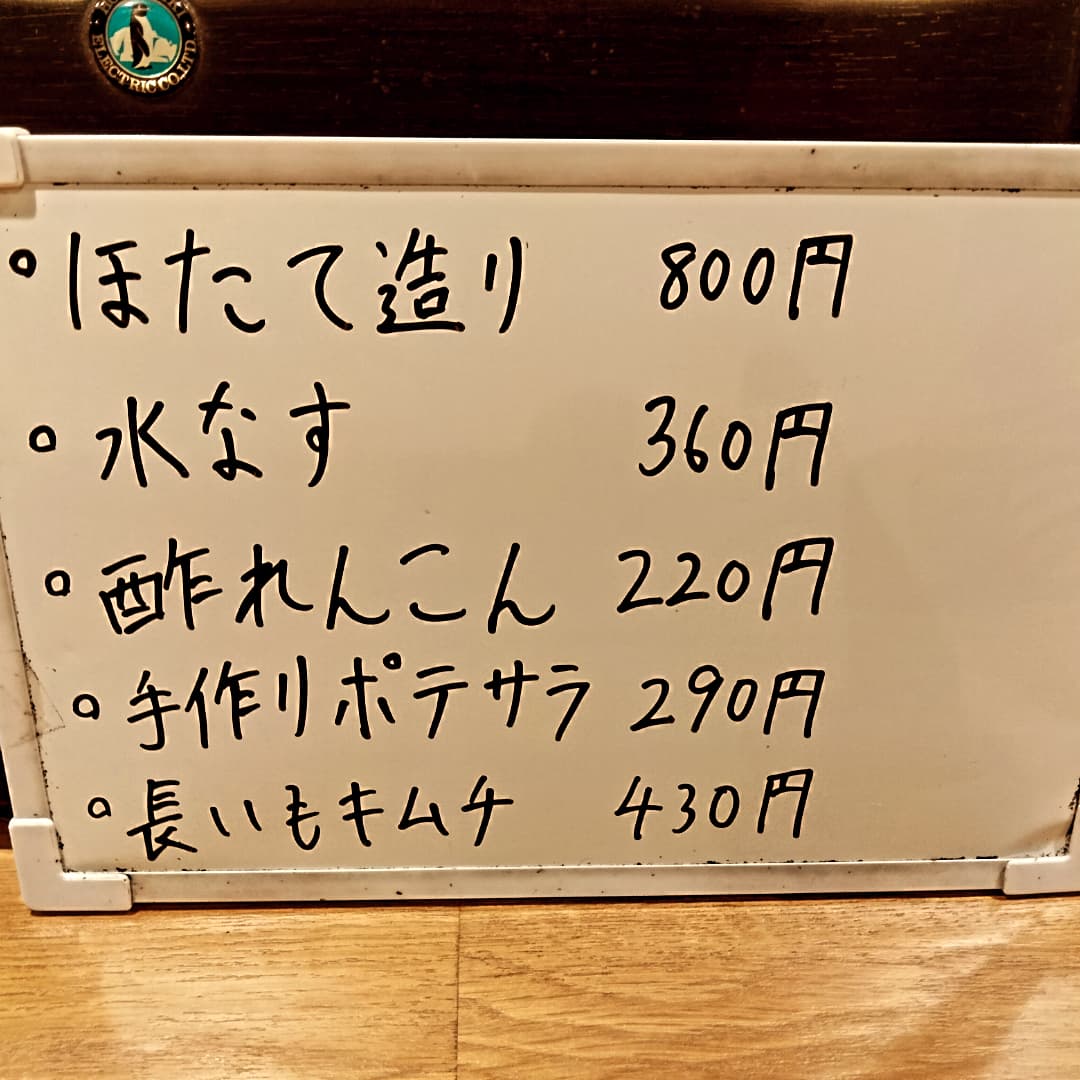 ELECTRIC CO.,LTD.
ほたて造り 800円
水なす 360円
酢れんこん 220円
手作りポテサラ 290円
長いもキムチ 430円